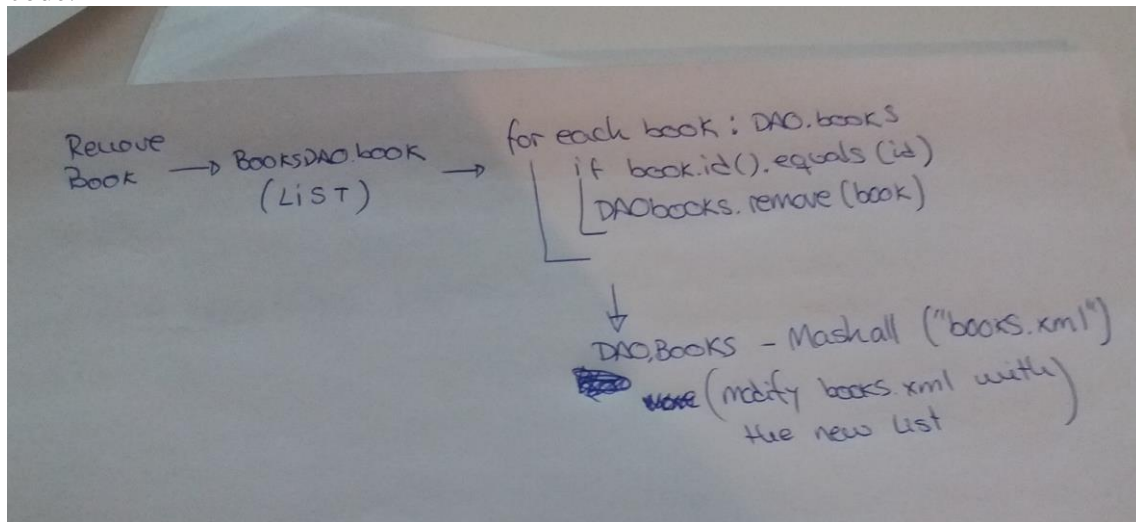 Remove
Book → BOOKSDAO.book
(LiST) →
for each book : DAO.books
if book.id().equals(id)
DAObooks.remove(book)
↓
DAO.BOOKS - Mashall ("books.xml")
(modify books.xml with
the new list)